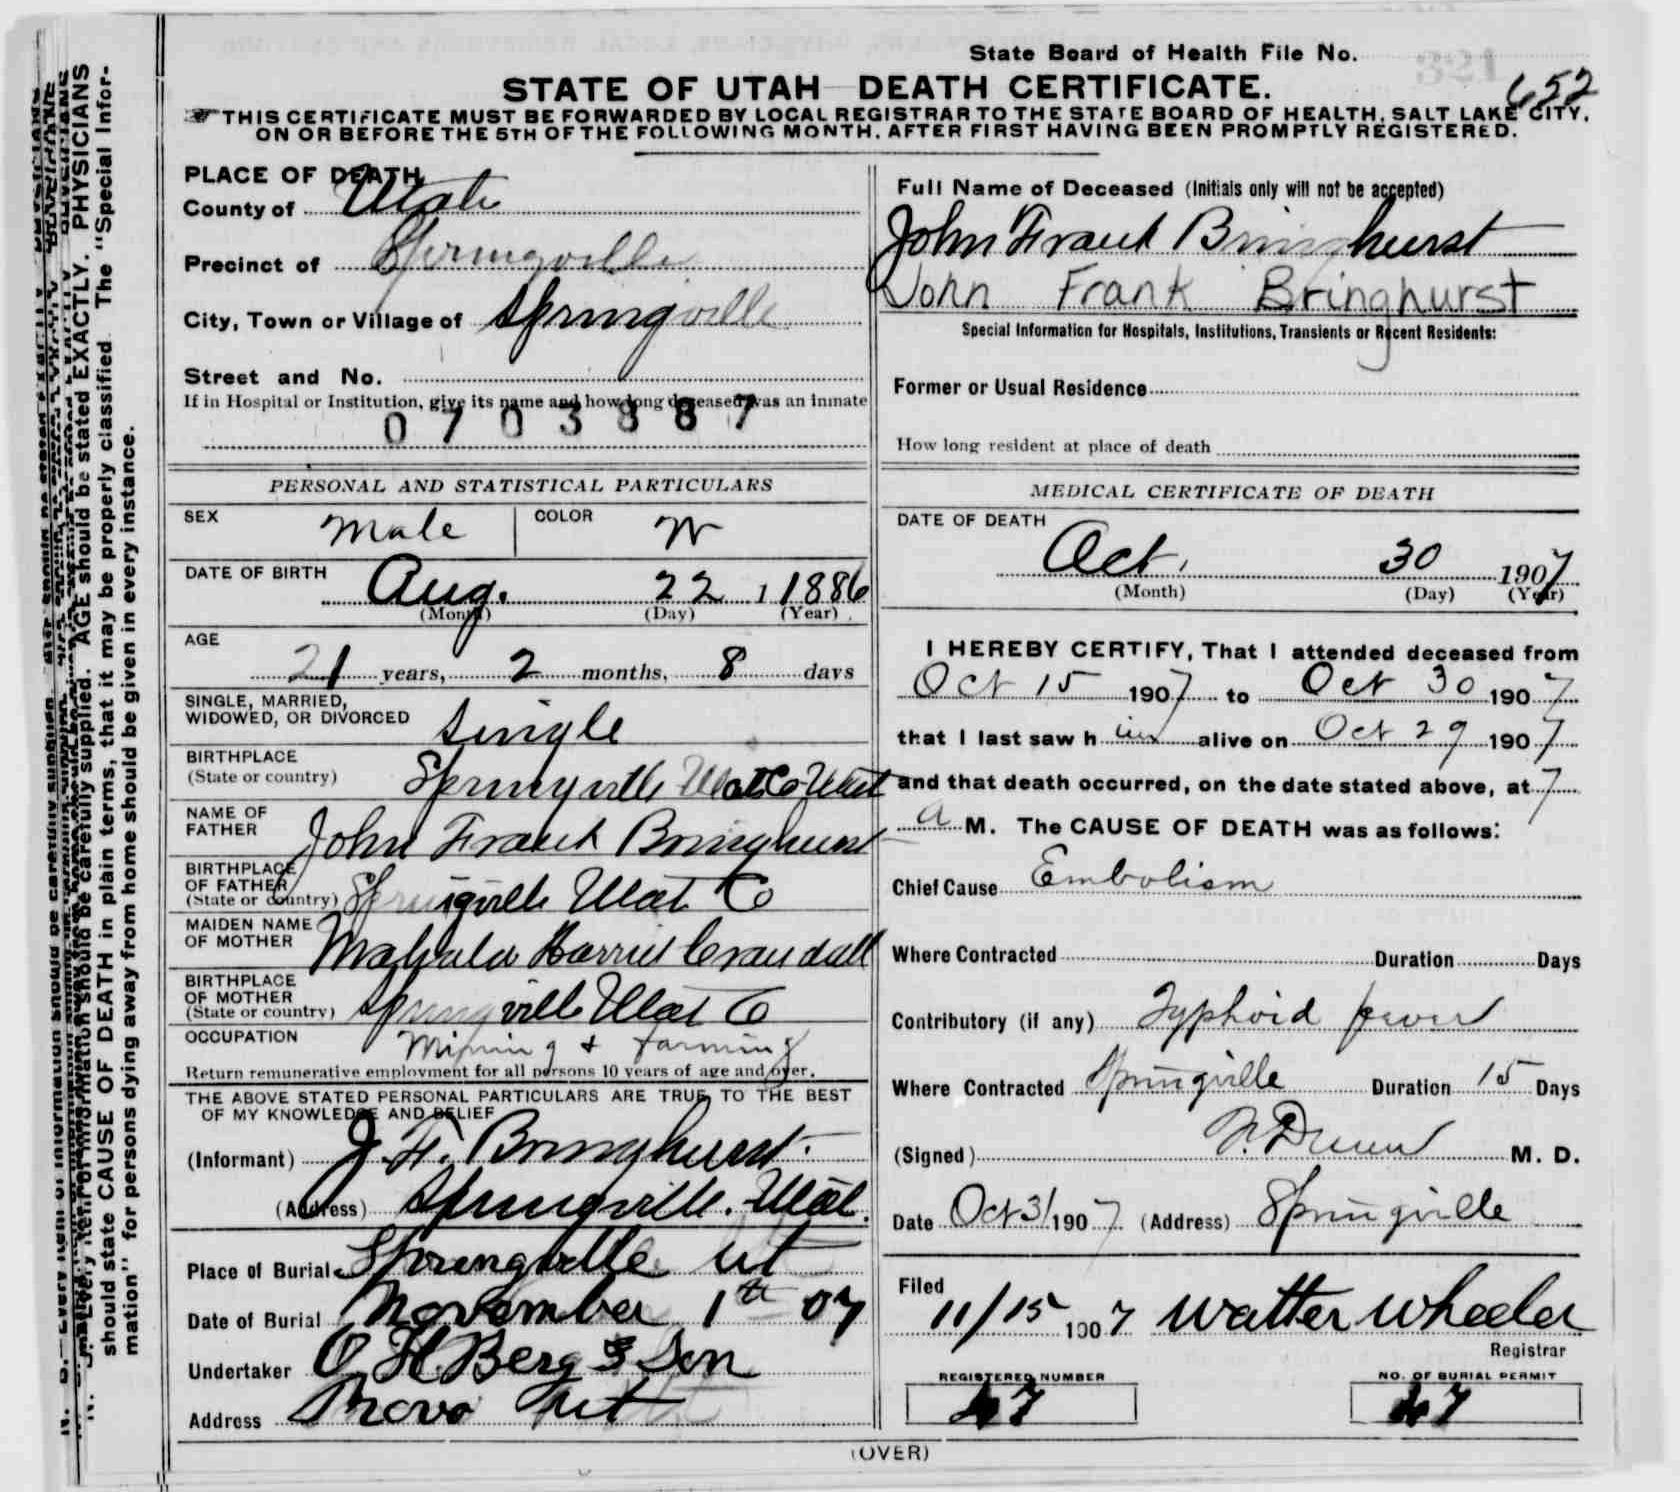 State Board of Health File No.
652
STATE OF UTAH DEATH CERTIFICATE.
THIS CERTIFICATE MUST BE FORWARDED BY LOCAL REGISTRAR TO THE STATE BOARD OF HEALTH, SALT LAKE CITY,
ON OR BEFORE THE 5TH OF THE FOLLOWING MONTH, AFTER FIRST HAVING BEEN PROMPTLY REGISTERED.
PLACE OF DEATH
County of Utah
Precinct of Springville
City, Town or Village of Springville
Street and No.
If in Hospital or Institution, give its name and how long deceased was an inmate
0703887
Full Name of Deceased (Initials only will not be accepted)
John Frank Bringhurst
John Frank Bringhurst
Special Information for Hospitals, Institutions, Transients or Recent Residents:
Former or Usual Residence
How long resident at place of death
PERSONAL AND STATISTICAL PARTICULARS
SEX Male COLOR W
DATE OF BIRTH Aug. 22 1 1886
(Month) (Day) (Year)
AGE
21 years, 2 months, 8 days
SINGLE, MARRIED,
WIDOWED, OR DIVORCED Single
BIRTHPLACE
(State or country) Springville Utah Co Utah
NAME OF
FATHER John Frank Bringhurst
BIRTHPLACE
OF FATHER
(State or country) Springville Utah Co
MAIDEN NAME
OF MOTHER Mahala Harriet Crandall
BIRTHPLACE
OF MOTHER
(State or country) Springville Utah Co
OCCUPATION Mining & Farming
Return remunerative employment for all persons 10 years of age and over.
THE ABOVE STATED PERSONAL PARTICULARS ARE TRUE TO THE BEST
OF MY KNOWLEDGE AND BELIEF
(Informant) J. F. Bringhurst.
(Address) Springville. Utah.
Place of Burial Springville Ut
Date of Burial November 1th 07
Undertaker O. H. Berg & Son
Address Provo Ut
MEDICAL CERTIFICATE OF DEATH
DATE OF DEATH
Oct. 30 1907
(Month) (Day) (Year)
I HEREBY CERTIFY, That I attended deceased from
Oct 15 1907 to Oct 30 1907
that I last saw him alive on Oct 29 1907
and that death occurred, on the date stated above, at 7
a M. The CAUSE OF DEATH was as follows:
Chief Cause Embolism
Where Contracted Duration Days
Contributory (if any) Typhoid fever
Where Contracted Springville Duration 15 Days
(Signed) M. D.
Date Oct 31 1907 (Address) Springville
Filed
11/15 1907 Walter Wheeler
Registrar
REGISTERED NUMBER
47
NO. OF BURIAL PERMIT
47
(OVER)
N. B.—Every item of information should be carefully supplied. AGE should be stated EXACTLY. PHYSICIANS
should state CAUSE OF DEATH in plain terms, that it may be properly classified. The "Special Infor-
mation" for persons dying away from home should be given in every instance.